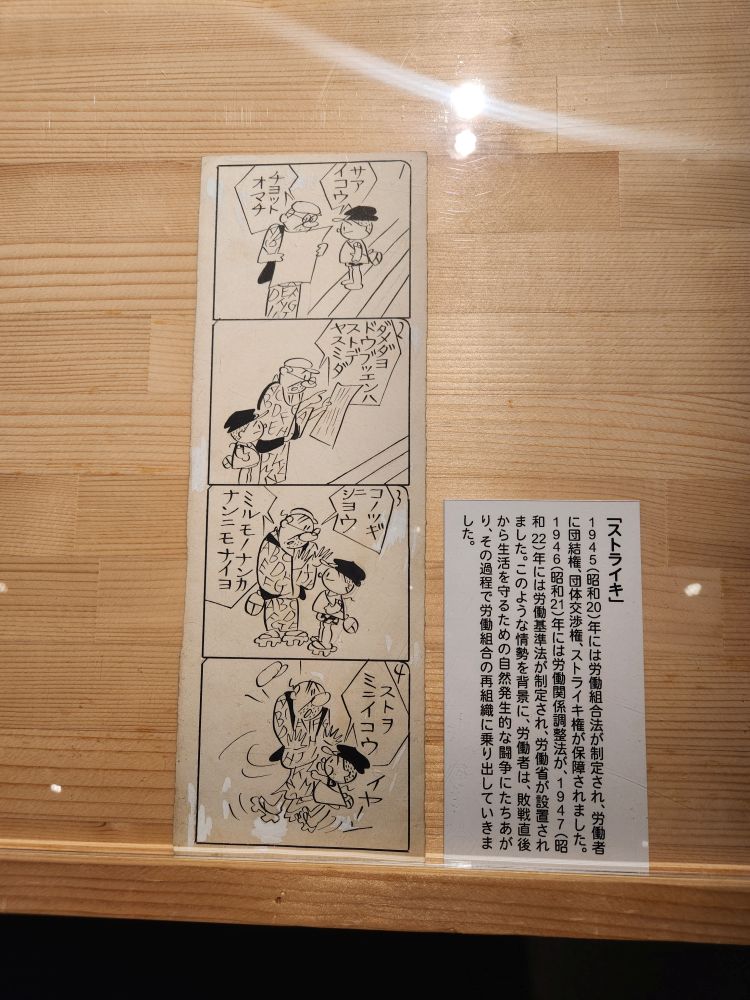 サア
イコウ
チヨット
オマチ
2
ダメダヨ
ドウブツエンハ
ストデ
ヤスミダ
3
コノツギ
ニシヨウ
ミルモノナンカ
ナンニモナイヨ
4
ストヲ
ミニイコウ
イヤー
「ストライキ」
1945(昭和20)年には労働組合法が制定され、労働者
に団結権、団体交渉権、ストライキ権が保障されました。
1946(昭和21)年には労働関係調整法が、1947(昭
和22)年には労働基準法が制定され、労働省が設置され
ました。このような情勢を背景に、労働者は、敗戦直後
から生活を守るための自然発生的な闘争にたちあが
り、その過程で労働組合の再組織に乗り出していきま
した。